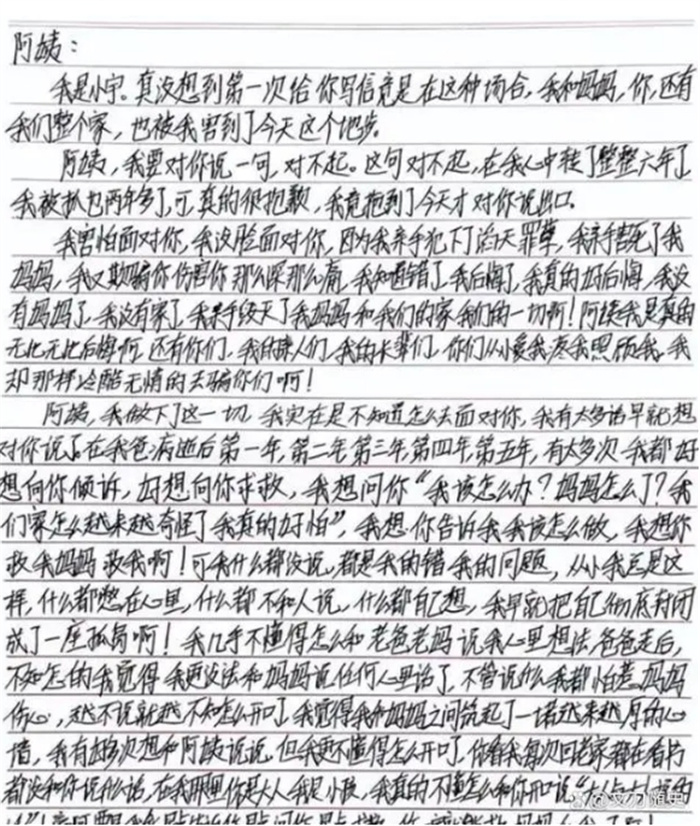 阿姨：
我是小宇。真没想到第一次给你写信竟是在这种场合，我和妈妈，你，还有
我们整个家，也被我害到了今天这个地步。
阿姨，我要对你说一句，对不起。这句对不起，在我心中转了整整六年了
我被抓也两年多了，可真的很抱歉，我竟拖到了今天才对你说出口。
我害怕面对你，我没脸面对你，因为我亲手犯下了滔天罪孽，我亲手害死了我
妈妈，我又欺骗你伤害你那么深那么痛，我知道错了，我后悔了，我真的好后悔，我没
有妈妈了，我没有家了，我亲手毁灭了我妈妈和我们的家我们的一切啊！阿姨我是真的
无比无比后悔啊，还有你们，我的亲人们，我的长辈们，你们从小爱我疼我照顾我，我
却那样冷酷无情的去骗你们啊！
阿姨，我做下了这一切，我实在是不知道怎么去面对你，我有太多话早就想
对你说了。在我爸病逝后第一年，第二年第三年，第四年第五年，有太多次我都好
想向你倾诉，好想向你求救，我想问你“我该怎么办？妈妈怎么了？我
们家怎么越来越奇怪了我真的好怕”，我想你告诉我我该怎么做，我想你
救我妈妈救我啊！可我什么都没说，都是我的错我的问题，从小我总是这
样，什么都憋在心里，什么都不和人说，什么都自己想，我早就把自己彻底封闭
成了一座孤岛啊！我几乎不懂得怎么和老爸老妈说我心里想法，爸爸走后，
不知怎的我觉得我更没法和妈妈说任何心里话了，不管说什么我都怕惹妈妈
伤心，越不说就越不知怎么开口了，我觉得我和妈妈之间筑起了一堵越来越厚的心
墙，我有好多次想和阿姨说说，但我更不懂得怎么开口了，你看我每次回老家都在看书
都没和你说什么话，在我那里你是大人我是小孩，我真的不懂怎么和你开口说“大人与大人间的